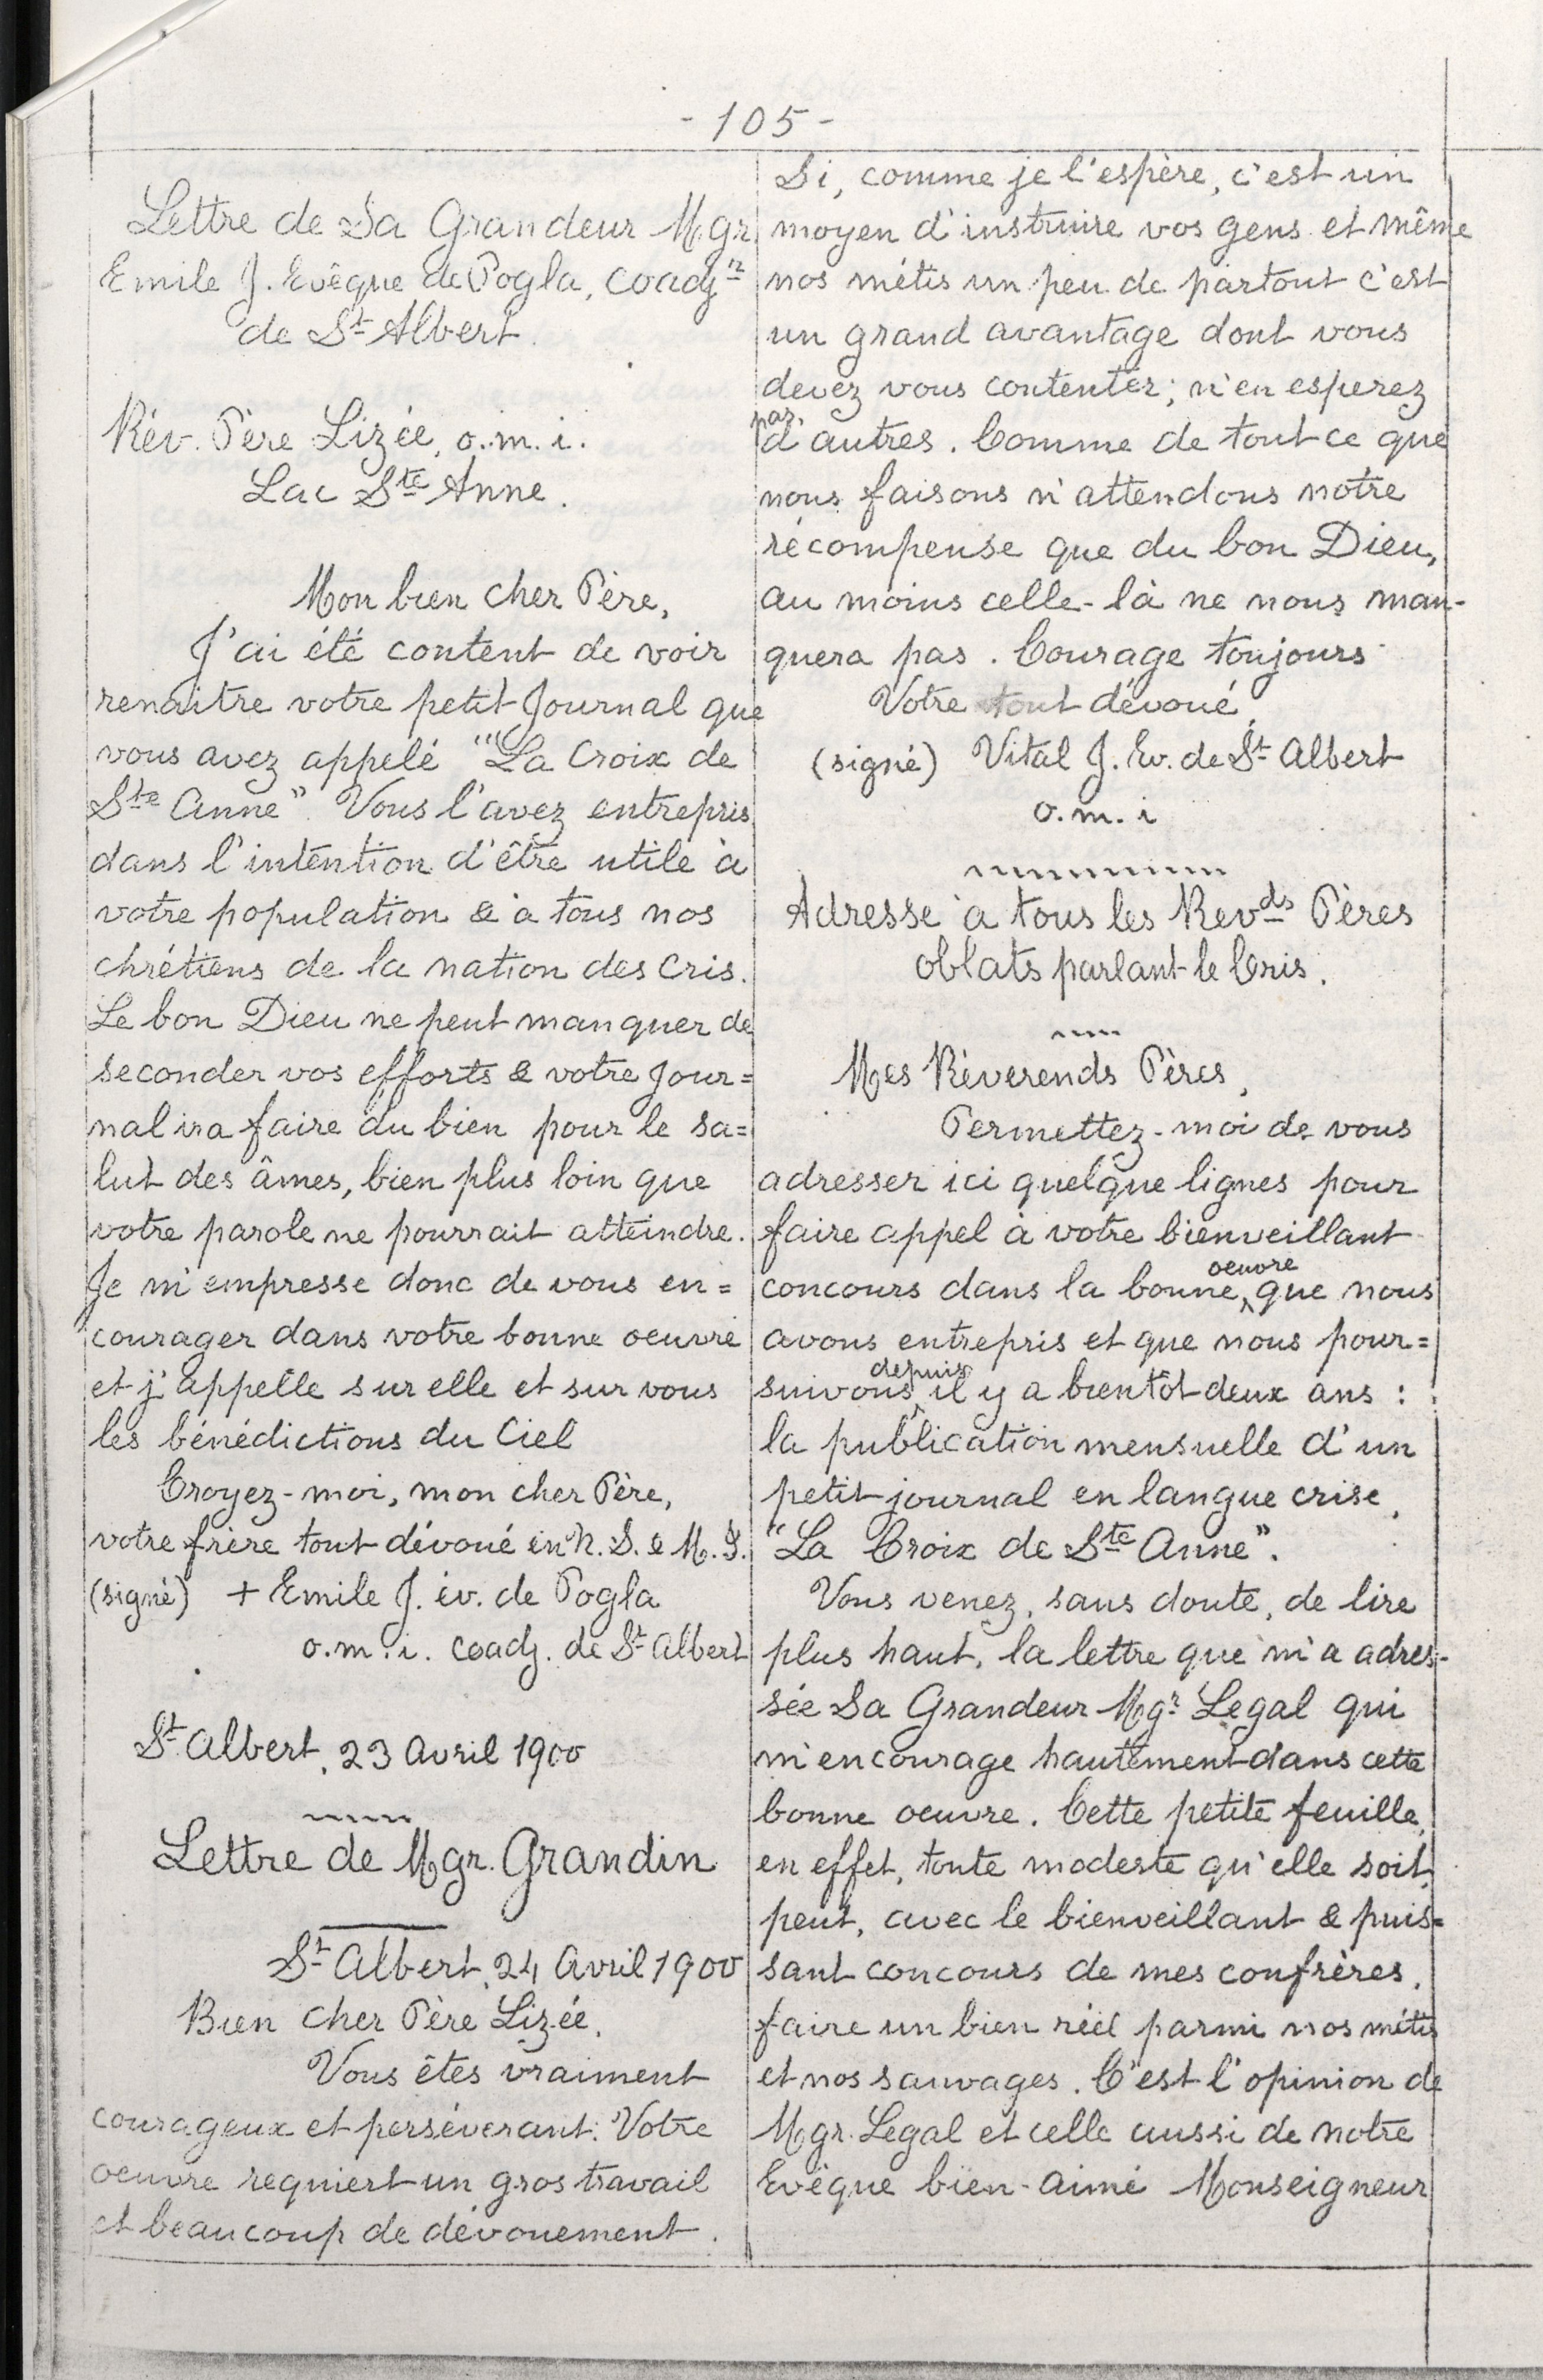 - 105 -
Lettre de Sa Grandeur Mgr
Emile J. Evêque de Pogla, coadjr
de St Albert.
Rév. Père Lizée, o.m.i.
Lac Ste Anne.
Mon bien cher Père,
J'ai été content de voir
renaitre votre petit Journal que
vous avez appelé "La Croix de
Ste Anne". Vous l'avez entrepris
dans l'intention d'être utile à
votre population & à tous nos
chrétiens de la nation des Cris.
Le bon Dieu ne peut manquer de
seconder vos efforts & votre Jour=
nal ira faire du bien pour le sa=
lut des âmes, bien plus loin que
votre parole ne pourrait atteindre.
Je m'empresse donc de vous en=
courager dans votre bonne oeuvre
et j'appelle sur elle et sur vous
les bénédictions du Ciel
Croyez-moi, mon cher Père,
votre frère tout dévoué en N.S. & M.J.
(signé) + Emile J. év. de Pogla
o.m.i. coadj. de St Albert
St Albert, 23 Avril 1900
Lettre de Mgr. Grandin
St Albert, 24 Avril 1900
Bien cher Père Lizée,
Vous êtes vraiment
courageux et persévérant. Votre
oeuvre requiert un gros travail
et beaucoup de dévouement.
Si, comme je l'espère, c'est un
moyen d'instruire vos gens et même
nos métis un peu de partout c'est
un grand avantage dont vous
devez vous contenter; n'en esperez
pas d'autres. Comme de tout ce que
nous faisons n'attendons notre
récompense que du bon Dieu,
au moins celle-là ne nous man-
quera pas. Courage toujours
Votre tout dévoué,
(signé) Vital J. Ev. de St Albert
o.m.i
Adresse à tous les Revds Pères
oblats parlant le Cris.
Mes Réverends Pères,
Permettez-moi de vous
adresser ici quelque lignes pour
faire appel à votre bienveillant
concours dans la bonne oeuvre que nous
avons entrepris et que nous pour=
suivons depuis il y a bientôt deux ans :
la publication mensuelle d'un
petit journal en langue crise,
"La Croix de Ste Anne".
Vous venez, sans doute, de lire
plus haut, la lettre que m'a adres-
sée Sa Grandeur Mgr Legal qui
m'encourage hautement dans cette
bonne oeuvre. Cette petite feuille,
en effet, toute modeste qu'elle soit,
peut, avec le bienveillant & puis=
sant concours de mes confrères,
faire un bien réel parmi nos métis
et nos sauvages. C'est l'opinion de
Mgr. Legal et celle aussi de notre
Evêque bien-aimé Monseigneur